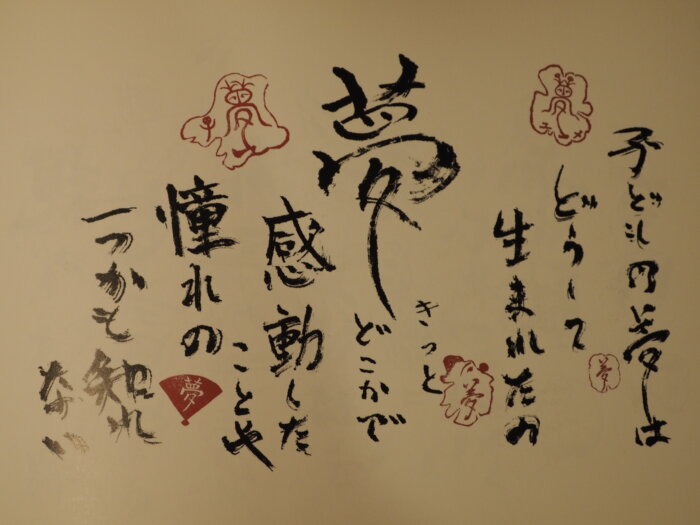 子どもの夢は
どうして
生まれたの
きっと
どこかで
夢
感動した
ことや
憧れの
一つかも知れ
ない
夢
夢
夢